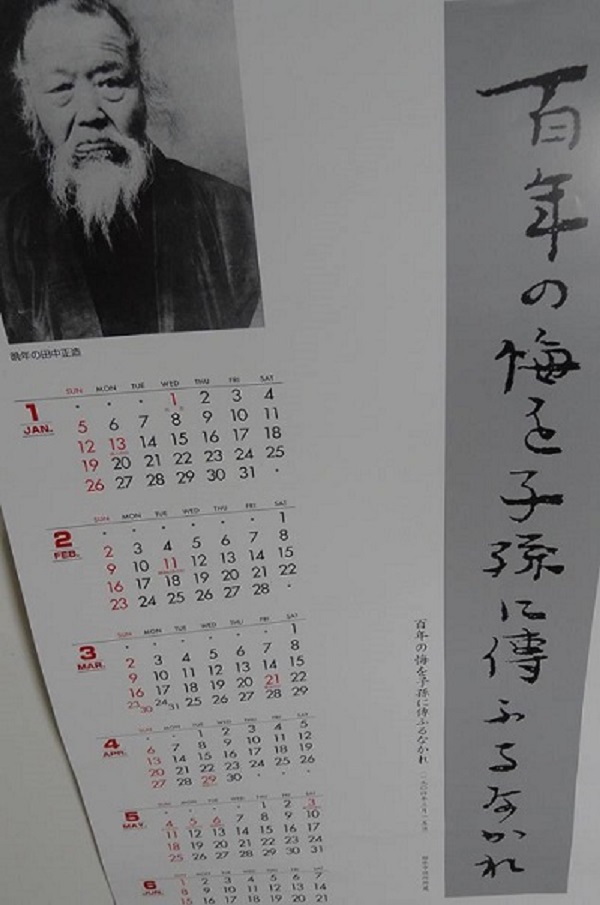 百年の悔を子孫に傳ふるなかれ
晩年の田中正造
1
JAN.
SUN MON TUE WED THU FRI SAT
1 2 3 4
5 6 7 8 9 10 11
12 13 14 15 16 17 18
19 20 21 22 23 24 25
26 27 28 29 30 31
2
FEB.
SUN MON TUE WED THU FRI SAT
1
2 3 4 5 6 7 8
9 10 11 12 13 14 15
16 17 18 19 20 21 22
23 24 25 26 27 28
3
MAR.
SUN MON TUE WED THU FRI SAT
1
2 3 4 5 6 7 8
9 10 11 12 13 14 15
16 17 18 19 20 21 22
23 30 24 31 25 26 27 28 29
4
APR.
SUN MON TUE WED THU FRI SAT
1 2 3 4 5
6 7 8 9 10 11 12
13 14 15 16 17 18 19
20 21 22 23 24 25 26
27 28 29 30
5
MAY.
SUN MON TUE WED THU FRI SAT
1 2 3
4 5 6 7 8 9 10
11 12 13 14 15 16 17
18 19 20 21 22 23 24
25 26 27 28 29 30 31
6
JUN.
SUN MON TUE WED THU FRI SAT
1 2 3 4 5 6 7
8 9 10 11 12 13 14
15 16 17 18 19 20 21
百年の悔を子孫に傳ふるなかれ